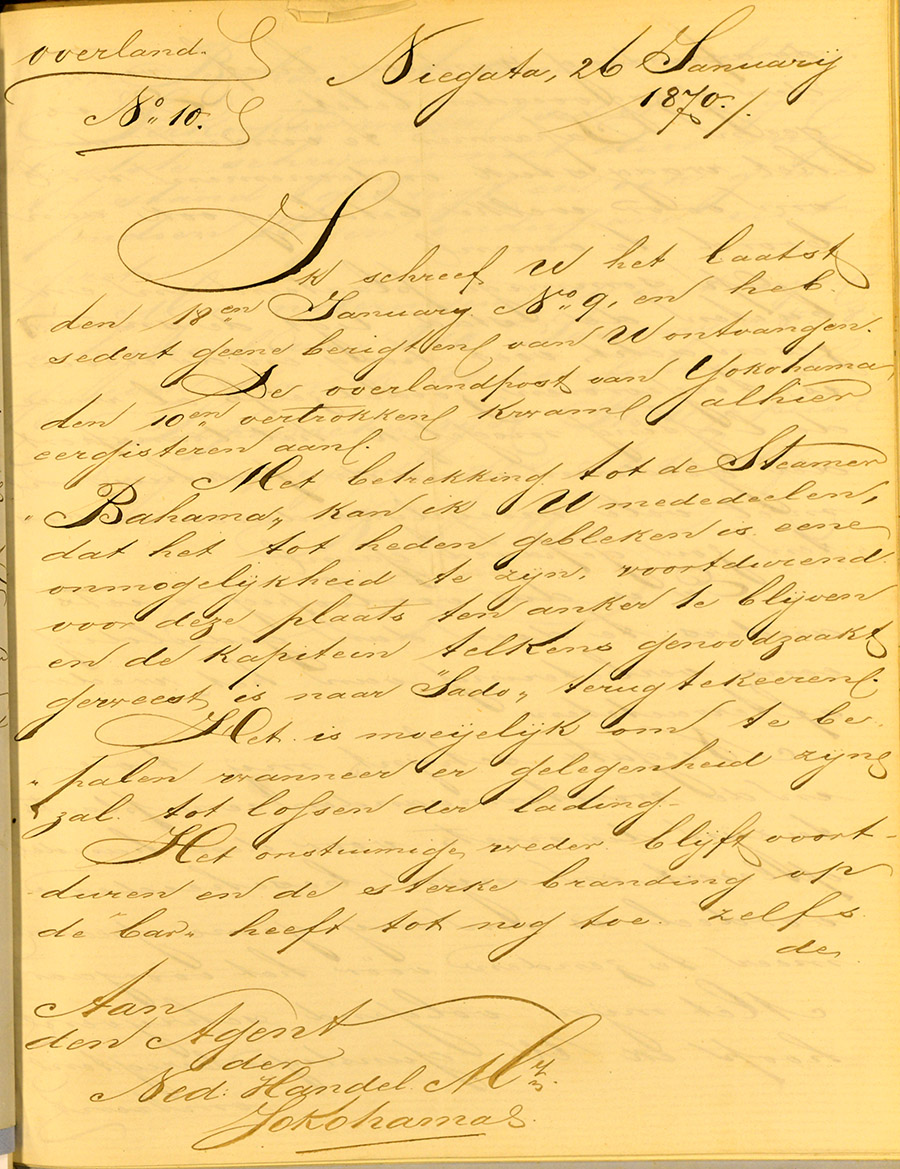 overland.
Niegata, 26 January
1870./.
No 10.
Ik schreef U het laatst
den 18en January No 9, en heb
sedert geene berigten van U ontvangen.
De overlandpost van Yokohama,
den 10en vertrokken kwam alhier
eergisteren aan.
Met betrekking tot de Steamer
"Bahama" kan ik U mededeelen,
dat het tot heden gebleken is eene
onmogelijkheid te zijn, voortdurend
voor deze plaats ten anker te blijven
en de kapitein telkens genoodzaakt
geweest is naar "Sado" terug te keeren.
Het is moeijelijk om te be-
"palen wanneer er gelegenheid zijn
zal tot lossen der lading.-
Het onstuimige weder blijft voort-
duren en de sterke branding op
de "bar" heeft tot nog toe zelfs
de
Aan
den Agent
der
Ned: Handel Mij.
Yokohama.